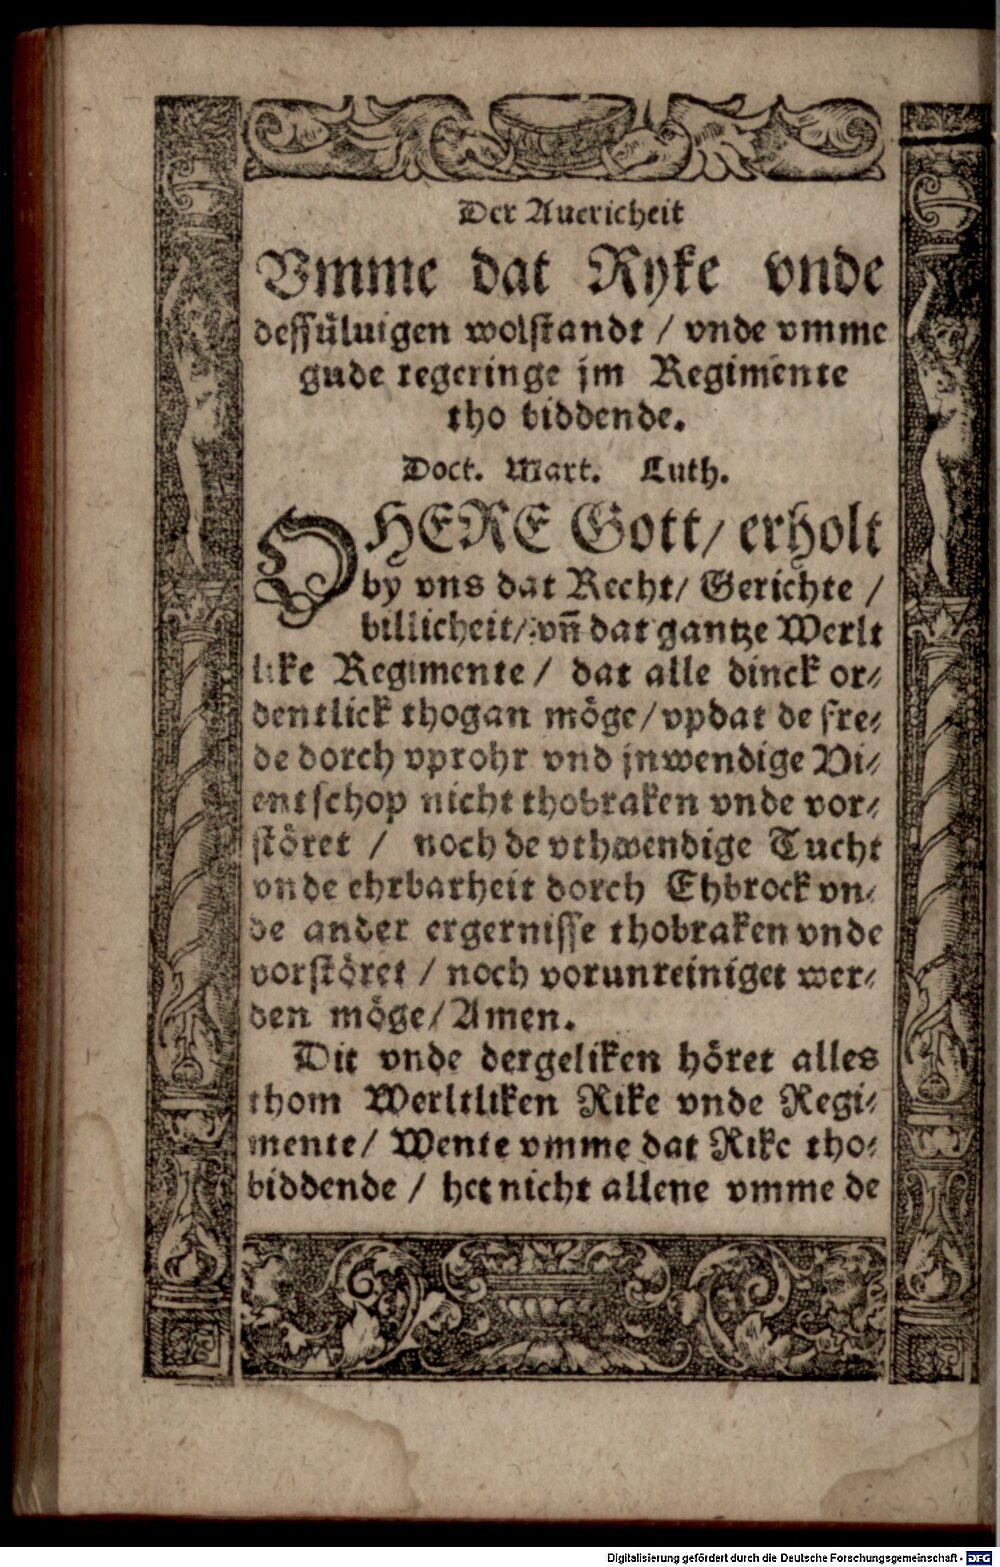 Der Auericheit
Vmme dat Ryke vnde
dessüluigen wolstandt / vnde vmme
gude regeringe jm Regimente
tho biddende.
Doct. Mart. Luth.
O HERE Gott / erholt
by vns dat Recht / Gerichte /
billicheit / vn̄ dat gantze Werlt
like Regimente / dat alle dinck or⸗
dentlick thogan möge / vpdat de fre⸗
de dorch vprohr vnd jnwendige Vi⸗
entschop nicht thobraken vnde vor⸗
störet / noch de vthwendige Tucht
vnde ehrbarheit dorch Ehbrock vn⸗
de ander ergernisse thobraken vnde
vorstöret / noch vorunreiniget wer⸗
den möge / Amen.
Dit vnde dergeliken höret alles
thom Werltliken Rike vnde Regi⸗
mente / Wente vmme dat Rike tho⸗
biddende / het nicht allene vmme de
Digitalisierung gefördert durch die Deutsche Forschungsgemeinschaft - DFG